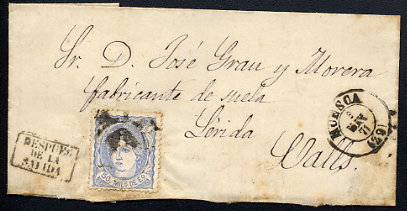 Sr. D. José Grau y Morera
fabricante de suela
Lérida
Valls.
HUESCA
DESPUES
DE LA
SALIDA
50 MILS DE E.